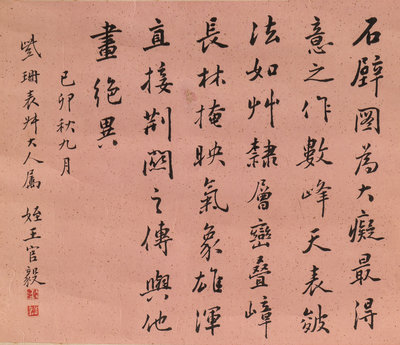 石壁圖為大癡最得
意之作數峰天表皴
法如艸隸層巒疊嶂
長林掩映氣象雄渾
直接荆關之傳與他
畫絕異
己卯秋九月
紫珊表叔大人屬 姪王官毅